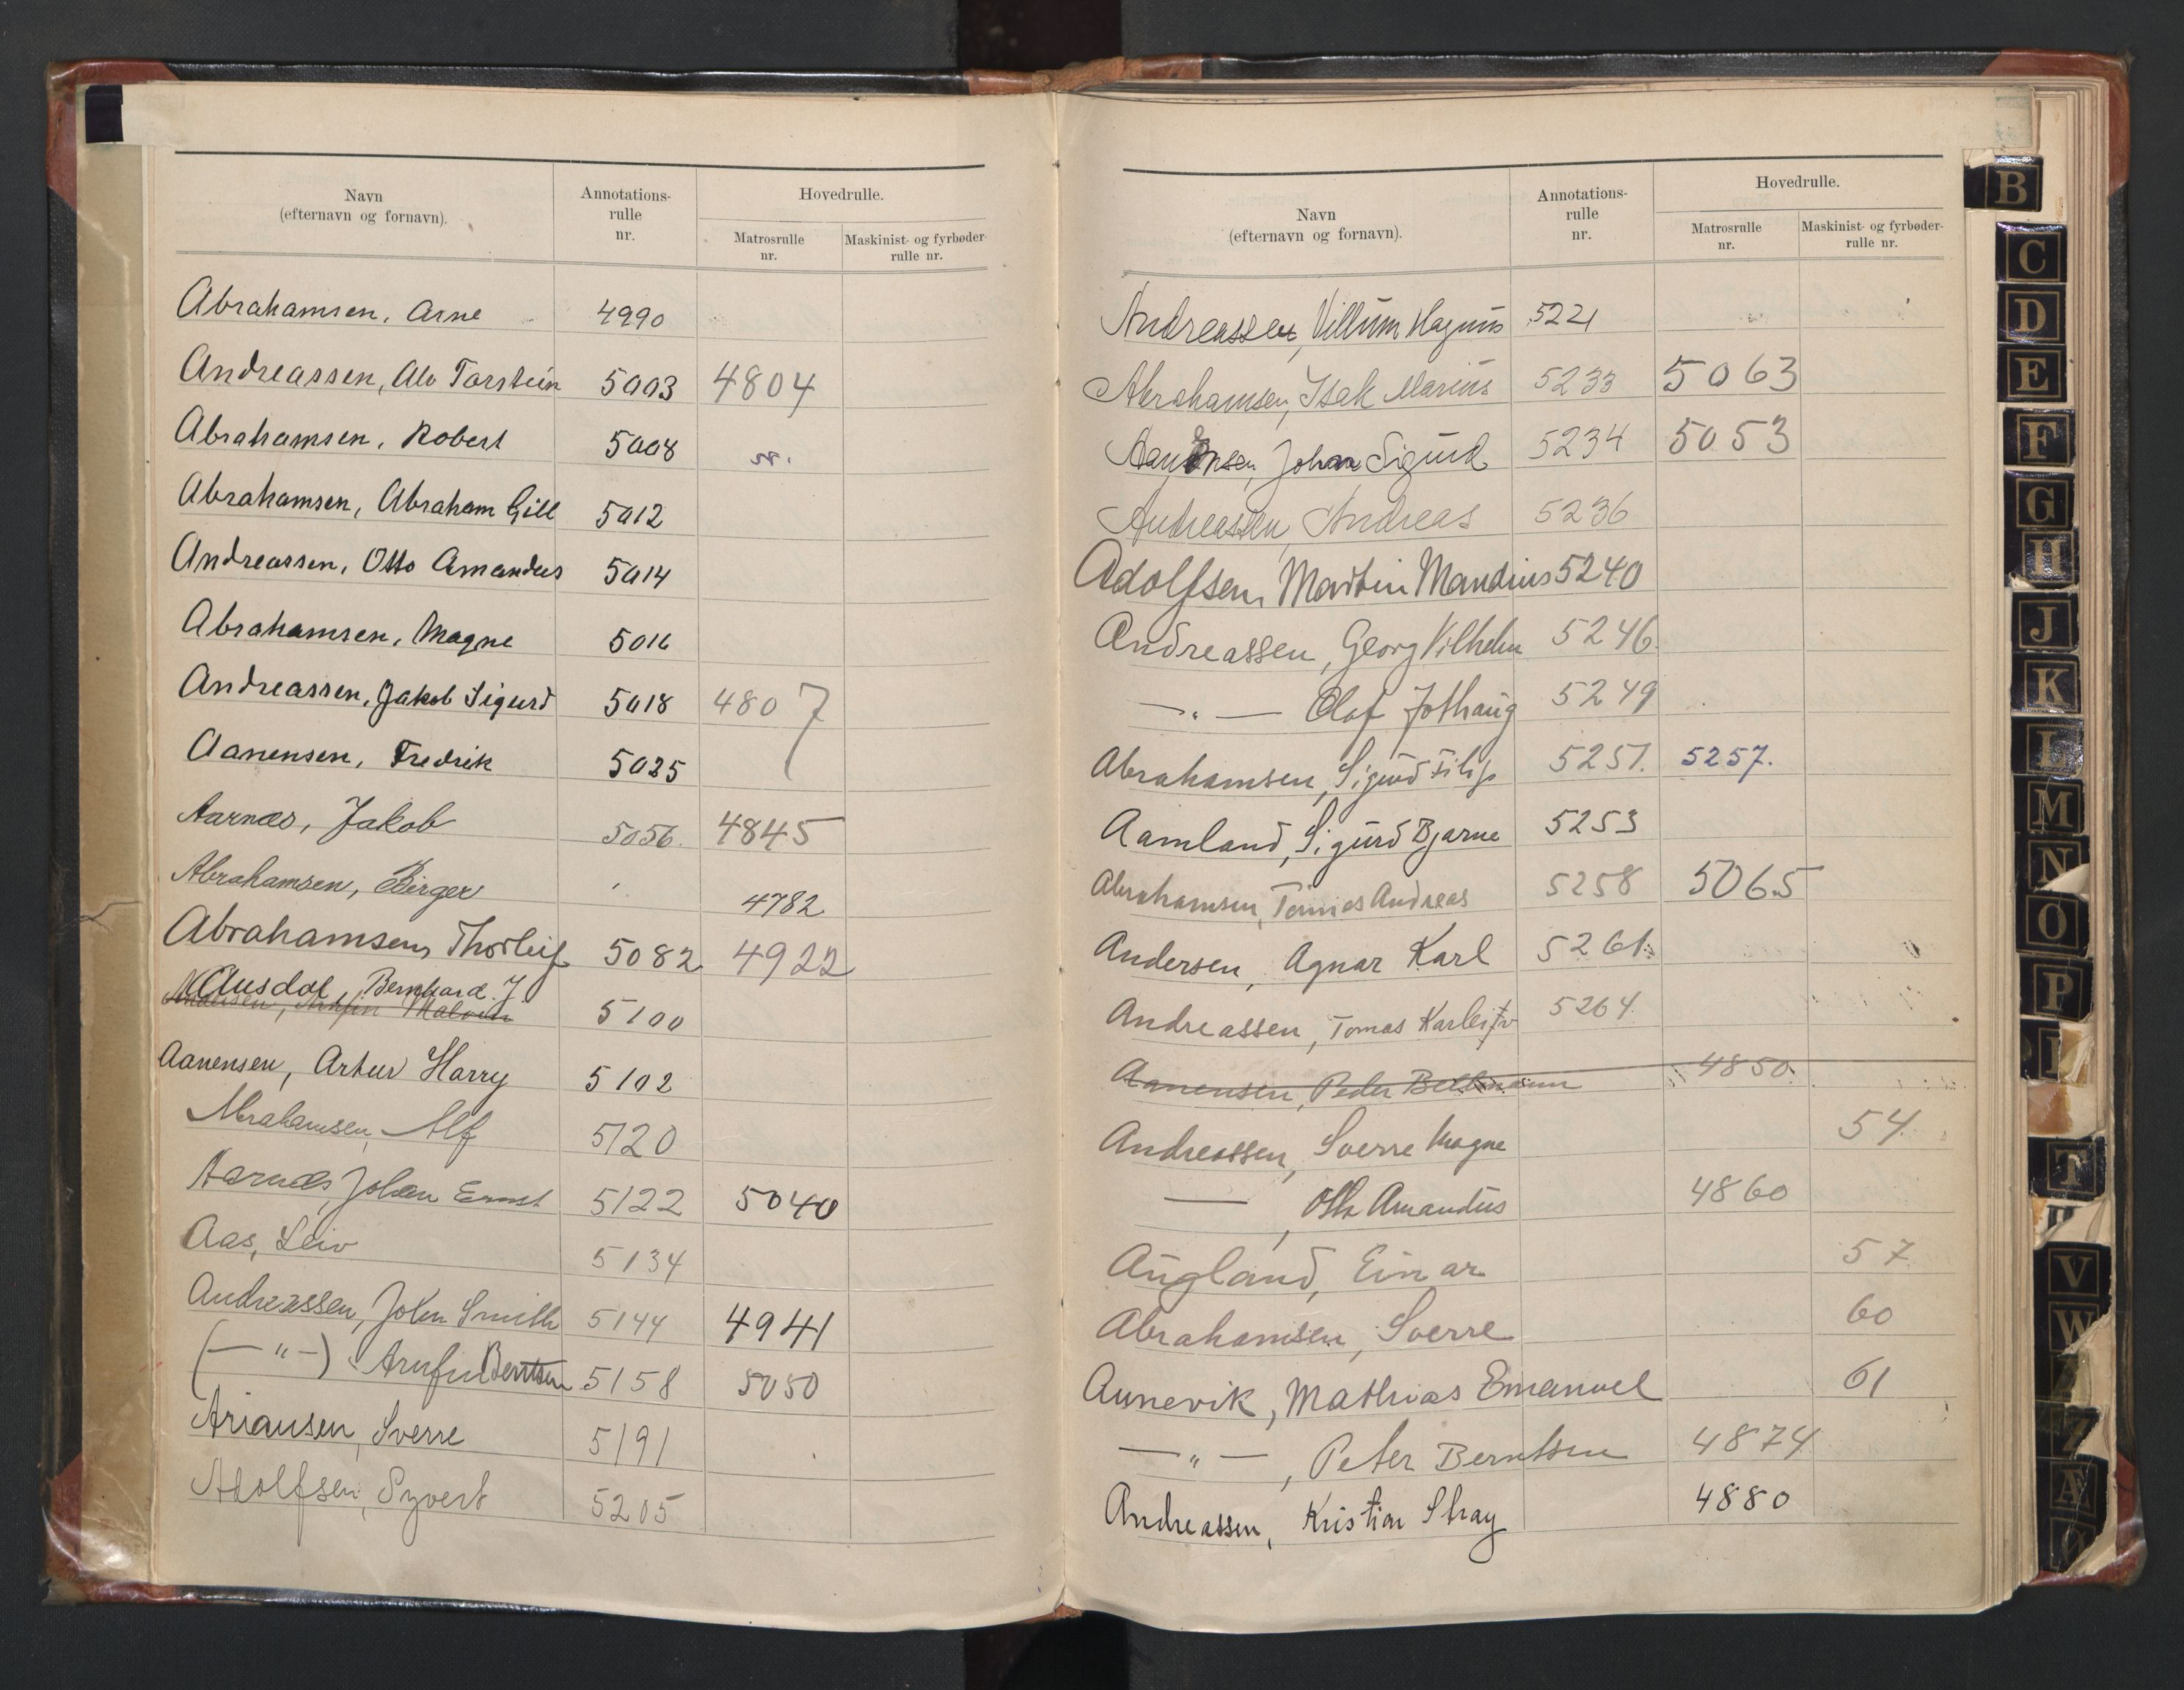 Navn
(efternavn og fornavn).
Annotations-
rulle
nr.
Hovedrulle.
Matrosrulle
nr.
Maskinist- og fyrbøder-
rulle nr.
Abrahamsen, Arne 4990
Andreassen, Alv Torstein 5003 4804
Abrahamsen, Robert 5008
Abrahamsen, Abraham Gill 5012
Andreassen, Otto Amandus 5014
Abrahamsen, Magne 5016
Andreassen, Jakob Sigurd 5018 4807
Aanensen, Fredrik 5025
Aarnæs, Jakob 5056. 4845
Abrahamsen, Birger 4782
Abrahamsen, Thorleif 5082 4922
Ausdal Bernhard. J
5100
Aanensen, Artur Harry 5102
Abrahamsen, Alf 5120
Aarnæs, Johan Ernst 5122 5040
Aas, Leiv 5134
Andreassen, John Smith 5144 4941
(—"—) Arnfin Berntsen 5158 5050
Ariansen, Sverre 5191
Adolfsen, Syvert 5205
Navn
(efternavn og fornavn).
Annotations-
rulle
nr.
Hovedrulle.
Matrosrulle
nr.
Maskinist- og fyrbøder-
rulle nr.
Andreassen, Villum Magnus 5221
Abrahamsen, Isak Marius 5233 5063
Aanensen, Johan Sigurd 5234 5053
Andreassen, Andreas 5236
Adolfsen, Martin Mandius 5240
Andreassen, Georg Vilhelm 5246.
—"— Olaf Jothaug 5249
Abrahamsen, Sigurd Filip 5251. 5257.
Aamland, Sigurd Bjarne 5253
Abrahamsen, Tomas Andreas 5258 5065
Andersen, Agnar Karl 5261
Andreassen, Tomas Karleif 5264.
Aanensen, Peder Bellmann 4850.
Andreassen, Sverre Magne 54.
— , Otto Amandus 4860
Augland, Einar 57
Abrahamsen, Sverre 60
Aunevik, Mathias Emanuel 61
—"— , Peter Berntsen 4874
Andreassen, Kristian Stray 4880
B
C
D
E
F
G
H
J
K
L
M
N
O
P
T
V
W
Z
Æ